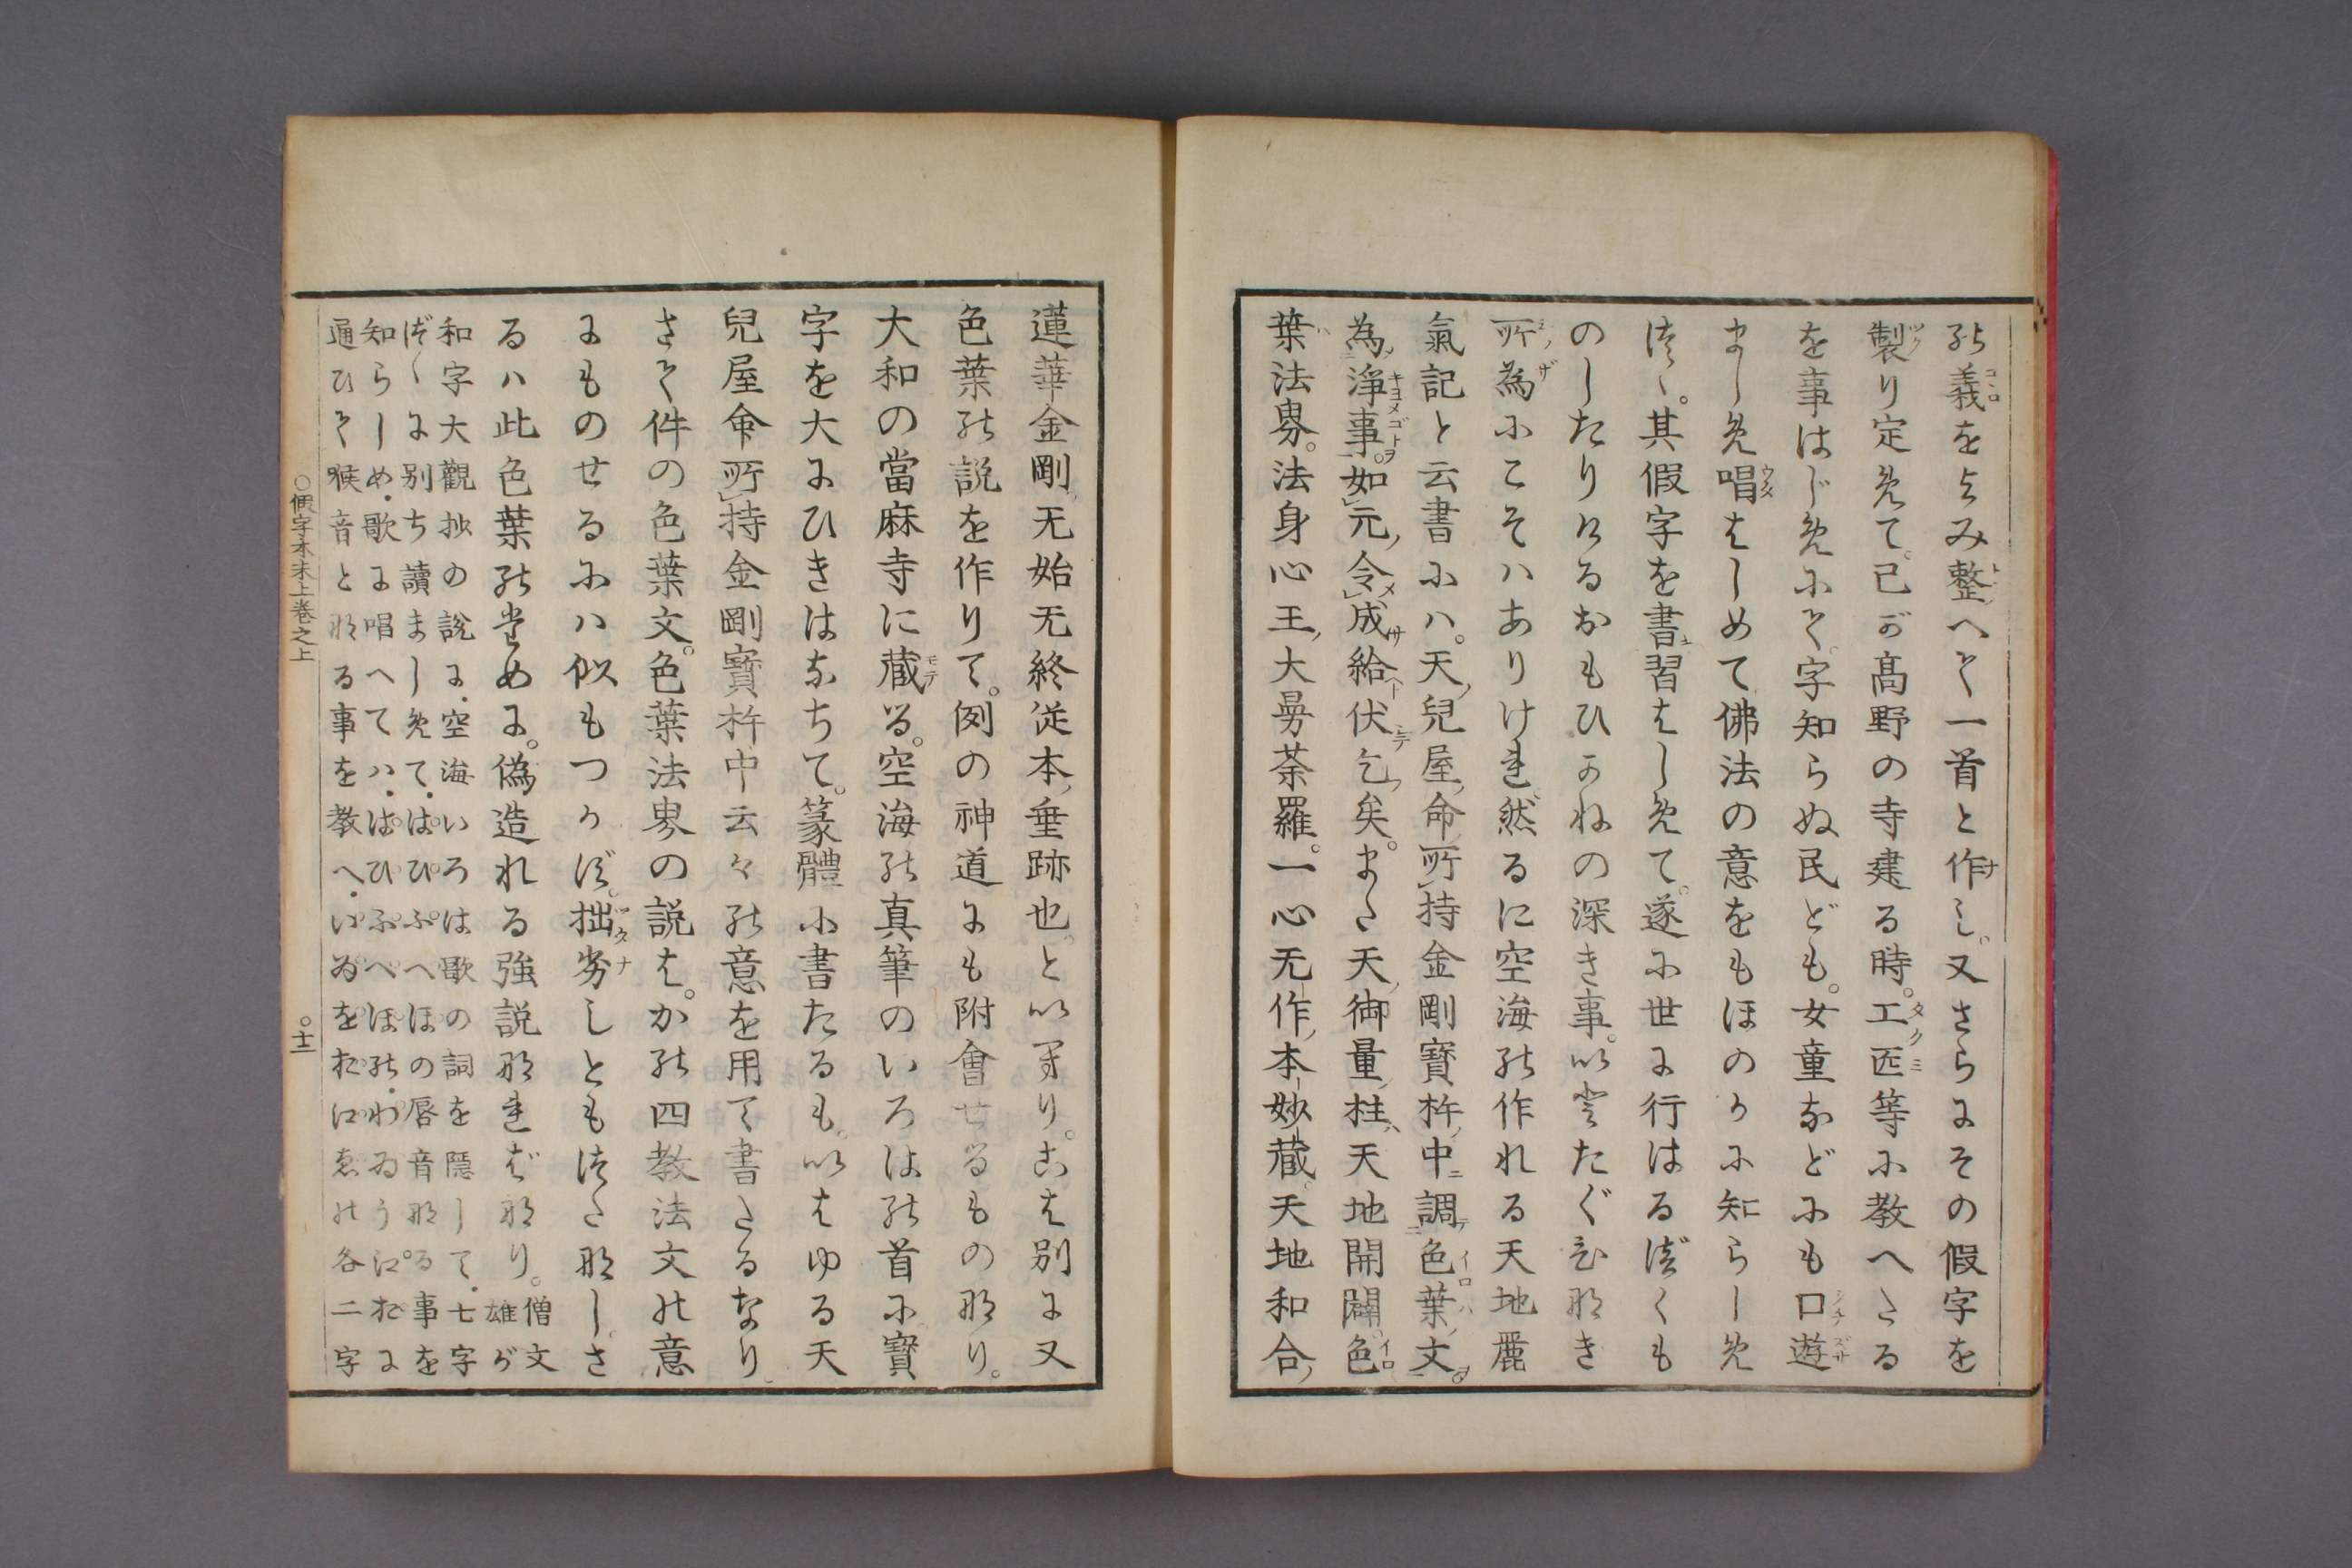 の義をよみ整へて一首と作し。又さらにその假字を
製り定めて。己が髙野の寺建る時。工匠等に教へたる
を事はじめにて。字知らぬ民ども。女童などにも口遊
ましめ唱はしめて佛法の意をもほのかに知らしめ
つゝ。其假字を書習はしめて。遂に世に行はるべくも
のしたりけるおもひかねの深き事。いはむたぐひなき
所為にこそハありけれ。然るに空海の作れる天地麗
氣記と云書にハ。天兒屋命所持金剛寳杵中調色葉文
為淨事。如元令成給伏乞矣。また天御量柱天地開闢色
葉法界。法身心王大曼荼羅。一心无作本妙藏天地和合
蓮華金剛无始无終従本垂跡也。といへり。こは別に又
色葉の説を作りて。例の神道にも附會せるものなり。
大和の當麻寺に蔵る。空海の真筆のいろはの首に寳
字を大にひきはなちて。篆體に書たるも。いはゆる天
兒屋命所持金剛寳杵中云々の意を用て書たるなり
さて件の色葉文。色葉法界の説は。かの四教法文の意
にものせるにハ似もつかず。拙劣しともつたなし。さ
るハ此色葉の為めに。偽造れる強説なればなり。僧文雄が
和字大觀抄の説に。空海いろは歌の詞を隠して。七字
づゝに別ち讀ましめて。ぱぴぷへほの唇音なる事を
知らしめ。歌に唱へてハ。ぱぴぷぺぽの。わゐう江おに
通ひて喉音となる事を教へ。いゐをお江ゑの各二字
○假字本末上巻之上
○十二